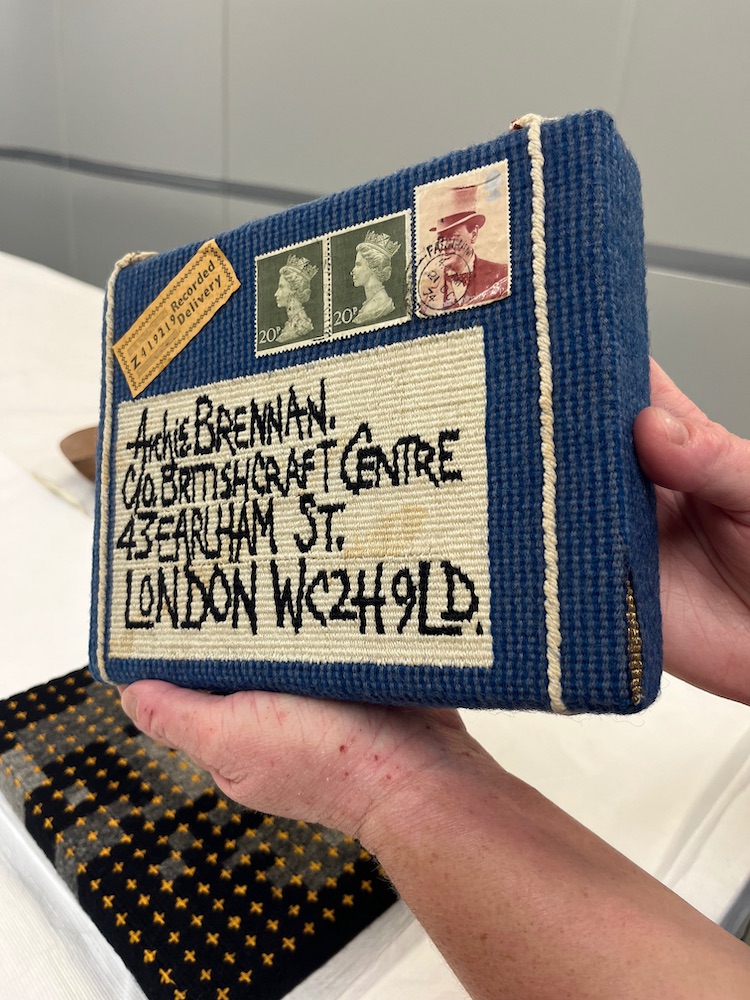 Z 419219 Recorded
Delivery
20P 20P
Archie BRENNAN.
C/o. BRITISH CRAFT CENTRE
43 EARLHAM ST.
LONDON WC2H 9LD.